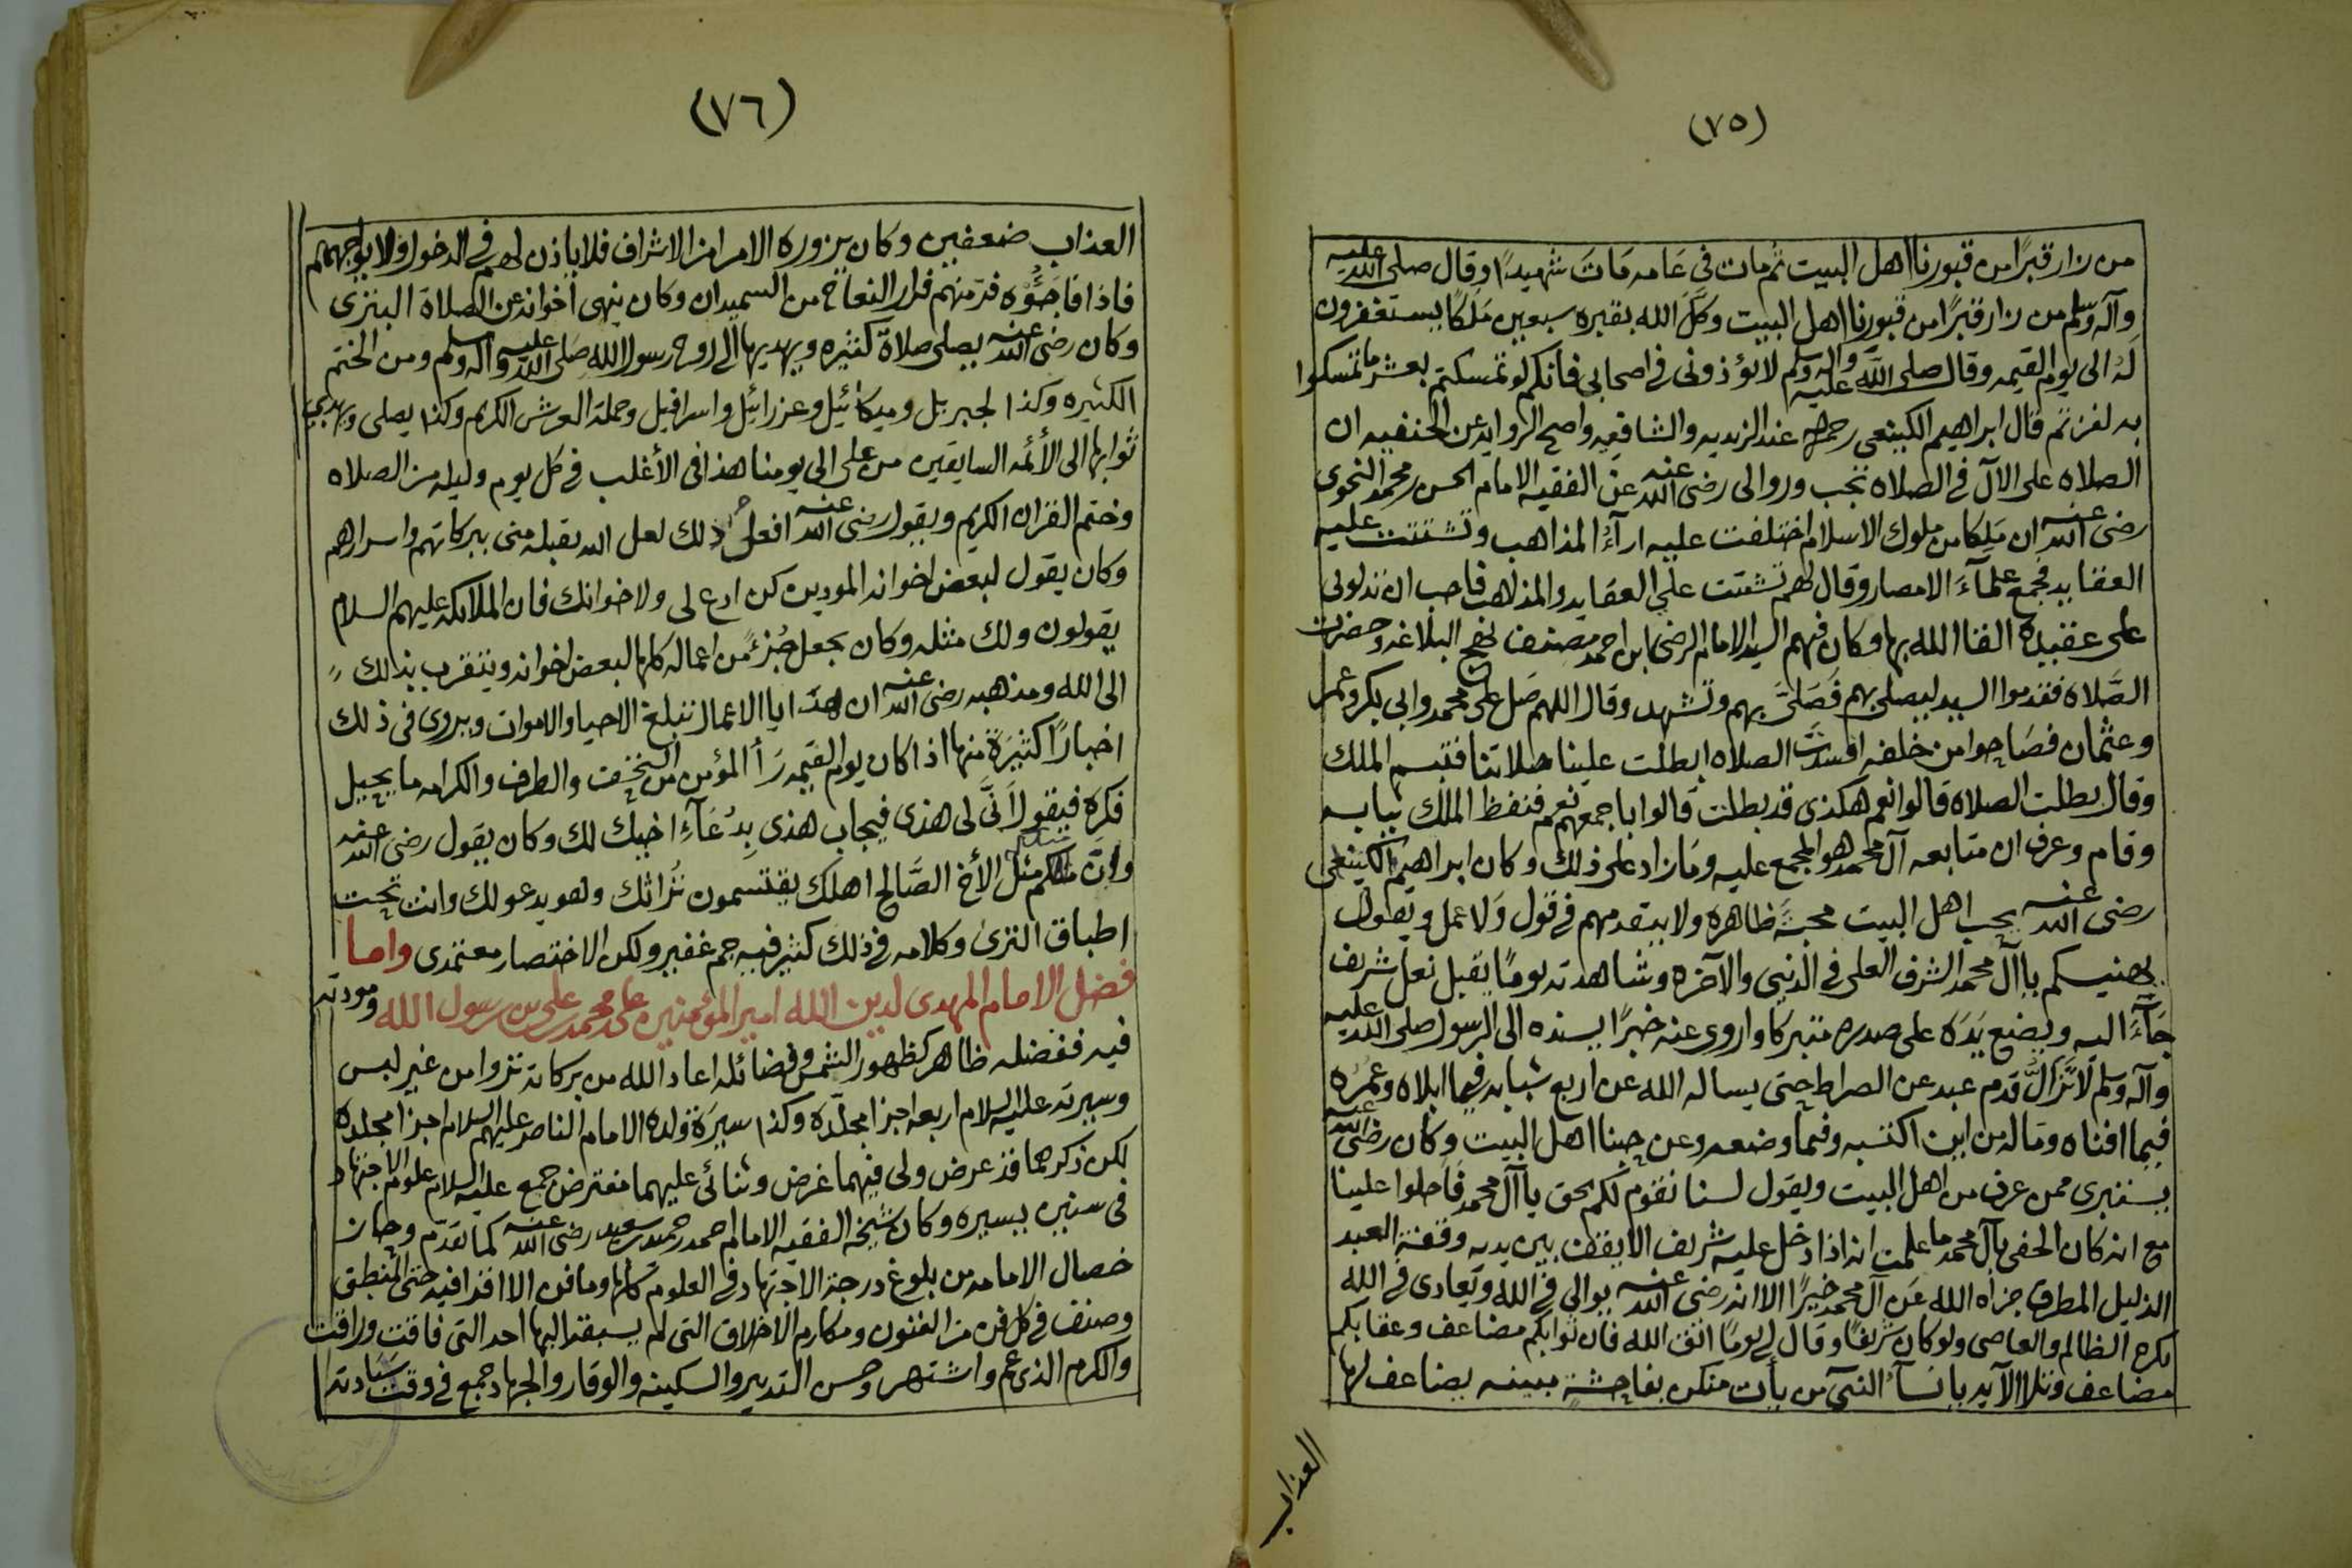 (٧٥)
من زار قبرًا من قبورنا اهل البيت ثم مات في عامه مَاتَ شهيدًا وقال صلى الله عليه
وآله وسلم من زار قبرًا من قبورنا اهل البيت وكَّلَ الله بقبره سبعين مَلَكًا يستغفرون
لَهُ الى يوم القيمه وقال صلى الله عليه وآله وسلم لا تؤذوني في اصحابي فانكم لو تمسكتم بعشر ما تمسكوا
به لفزتم قال ابراهيم الكينعي رحمه الله عند الزيديه والشافعيه واصح الروايه عن الحنفيه ان
الصلاه على الآل في الصلاه تجب وروالى رضي الله عنه عن الفقيه الامام الحسن بن محمد النحوى
رضي الله عنه ان مَلِكا من ملوك الاسلام اختلفت عليه ارآءُ المذاهب وتشتتت عليه
العقايد فجمع علمآءَ الامصار وقال لهم تشتت علي العقايد والمذاهب فاحب ان تدلونى
على عقيدة القا الله بها وكان فيهم السيد الامام الرضي ابن احمد مصنف نهج البلاغه وحضرت
الصَّلاه فقدموا السيد ليصلى بهم فَصَلَّى بهم وتشهد وقال اللهم صَل على محمد وابي بكر وعمر
وعثمان فصَاحوا من خلفه افسدت الصلاه ابطلت علينا صلاتنا فتبسم الملك
وقال بطلت الصلاه قالوا نعم هكذى قد بطلت قالوا باجمعهم نعم فنفظ الملك ثيابه
وقام وعرف ان متابعه آل محمد هو المجمع عليه ومَا زاد على ذلك وكان ابراهيم الكينعي
رضي الله عنه يحب اهل البيت محبةً ظاهره ولا يتقدمهم في قول وَلا عمل ويقول
يهنيكم ياآل محمد الشرف العلى في الدنيى والآخره وشاهدته يومًا يقبل نعل شريف
جَآءَ اليه ويضع يَدَهُ على صدره متبركا واروى عنه خبرًا يسنده الى الرسول صلى الله عليه
وآله وسلم لَا تَزَالُ قدم عبد عن الصراط حتى يساله الله عن اربع شبابه فيما ابلاه وعمره
فيما افناه ومَاله من اين اكتسبه وفيما وضعه وعن حبنا اهل البيت وكان رضي الله عنه
يستبرى ممن عرف من اهل البيت ويقول لسنا نقوم لكم بحق ياآل محمد فَاحلوا علينا
مع انه كان الحفى بآل محمد ما علمت انه اذا دخل عليه شريف الا يقف بين يديه وقفة العبد
الذليل المطرق جزاه الله عَن آل محمد خيرًا الا انه رضي الله عنه يوالي في الله ويعادى في الله
يكره الظالم والعاصى ولو كان شريفًا وقال لي يومًا اتق الله فان ثوابكم مضاعف وعقابكم
مضاعف وتلا الآيه يا نسآءَ النبي من يأت منكن بفاحشة مبينه يضاعف لها
العذاب
(٧٦)
العذاب ضعفين وكان يزوره الامرا من الاشراف فلا ياذن لهم في الدخول ولا يواجههم
فاذا فاجَئُوْه فر منهم فرار النعاج من السميدان وكان ينهى اخوانه عن الصلاة البترى
وكان رضي الله عنه يصلى صلاة كثيره ويهديها الى روح رسول الله صَلى الله عليه وآله وسلم ومن الختم
الكثيره وكذا لجبريل وميكائيل وعزرائيل واسرافيل وحملة العرش الكريم وكذا يصلى ويهدي
ثوابها الى الأئمه السابقين من على الى يومنا هذا في الأغلب في كل يوم وليله من الصلاه
وختم القران الكريم ويقول رضي الله عنه افعل ذلك لعل الله يقبله منى ببركاتهم واسرارهم
وكان يقول لبعض اخوانه المودين كن ادع لى ولاخوانك فان الملائكه عليهم السلام
يقولون ولك مثله وكان يجعل جُزءً من اعماله كلها لبعض اخوانه ويتقرب بذلك
الى الله ومذهبه رضي الله عنه ان هدايا الاعمال تبلغ الاحيا والاموات ويروى في ذلك
اخبارًا كثيرَةً منها اذا كان يوم القيمه رَأ المؤمن من التحف والطرف والكرامه ما يحيل
فكره فيقول اَنَّى لى هذى فيجاب هذى بِدُعَآءِ اخيك لك وكان يقول رضي الله عنه
واِنَّ مثلكم مثل الأخ الصَّالح اهلك يقتسمون تُراثك وهو يدعو لك وانت تحت
اطباق الثرى وكلامه في ذلك كثير فيه جم غفير ولكن الاختصار معتمدى واما
فضل الامام المهدى لدين الله امير المؤمنين على بن محمد بن على بن رسول الله ومودته
فيه ففضله ظاهر كظهور الشمس وفضائله اعاد الله من بركاته تروا من غير لبس
وسيرته عليه السلام اربعه اجزا مجلّده وكذا سيرَة ولده الامام الناصر عليهم السلام اجزا مجلده
لكن ذكرهما قد عرض ولى فيهما غرض وثنائى عليهما مفترض جمع عليه السلام علوم الاجتهاد
في سنين يسيره وكان شيخه الفقيه الامام احمد حميد بن سعيد رضي الله عنه كما تقدّم وحاز
خصال الامامه من بلوغ درجة الاجتهاد في العلوم كلها وما فن الا اقرا فيه حتى المنطق
وصنف في كل فن من الفنون ومكارم الاخلاق التى لم يسبقه اليها احد التى فاقت وراقت
والكرم الذى عم واشتهر وحسن التدبير والسكينه والوقار والجهاد جمع في وقت سَيادته